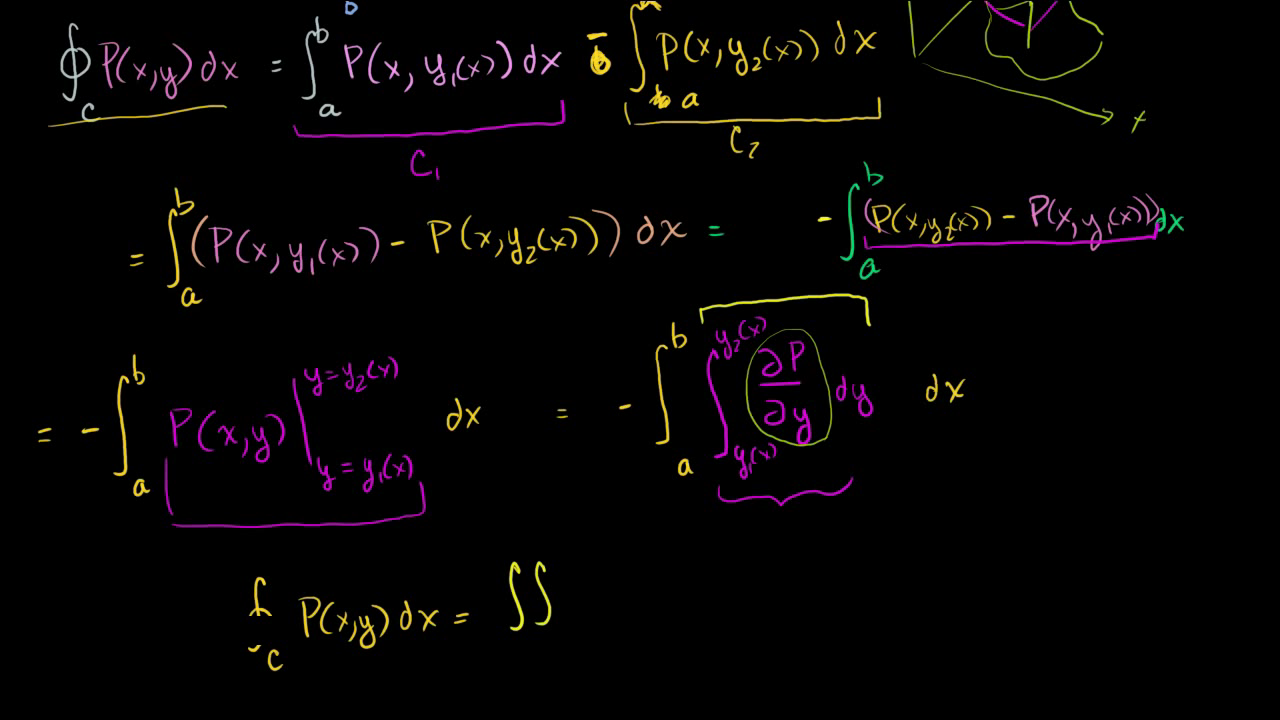 ∮_C P(x,y) dx = ∫_a^b P(x, y₁(x)) dx - ∫_a P(x, y₂(x)) dx
C₁ C₂ x
= ∫_a^b (P(x, y₁(x)) - P(x, y₂(x))) dx = - ∫_a^b (P(x, y₂(x)) - P(x, y₁(x))) dx
= - ∫_a^b P(x,y) |_{y = y₁(x)}^{y = y₂(x)} dx = - ∫_a^b ∫_{y₁(x)}^{y₂(x)} ∂P/∂y dy dx
∮_C P(x,y) dx = ∬